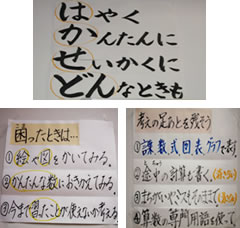 はやく
かんたんに
せいかくに
どんなときも
困ったときは…
①絵や図をかいてみる。
②かんたんな数におきかえてみる。
③今まで習ったことが使えないか考える。
考えの足あとを残そう
①言葉 数 式 図 表 グラフで表す。
②途中の計算も書く。
③まちがいやミスもそのままで
④算数の専門用語を使って